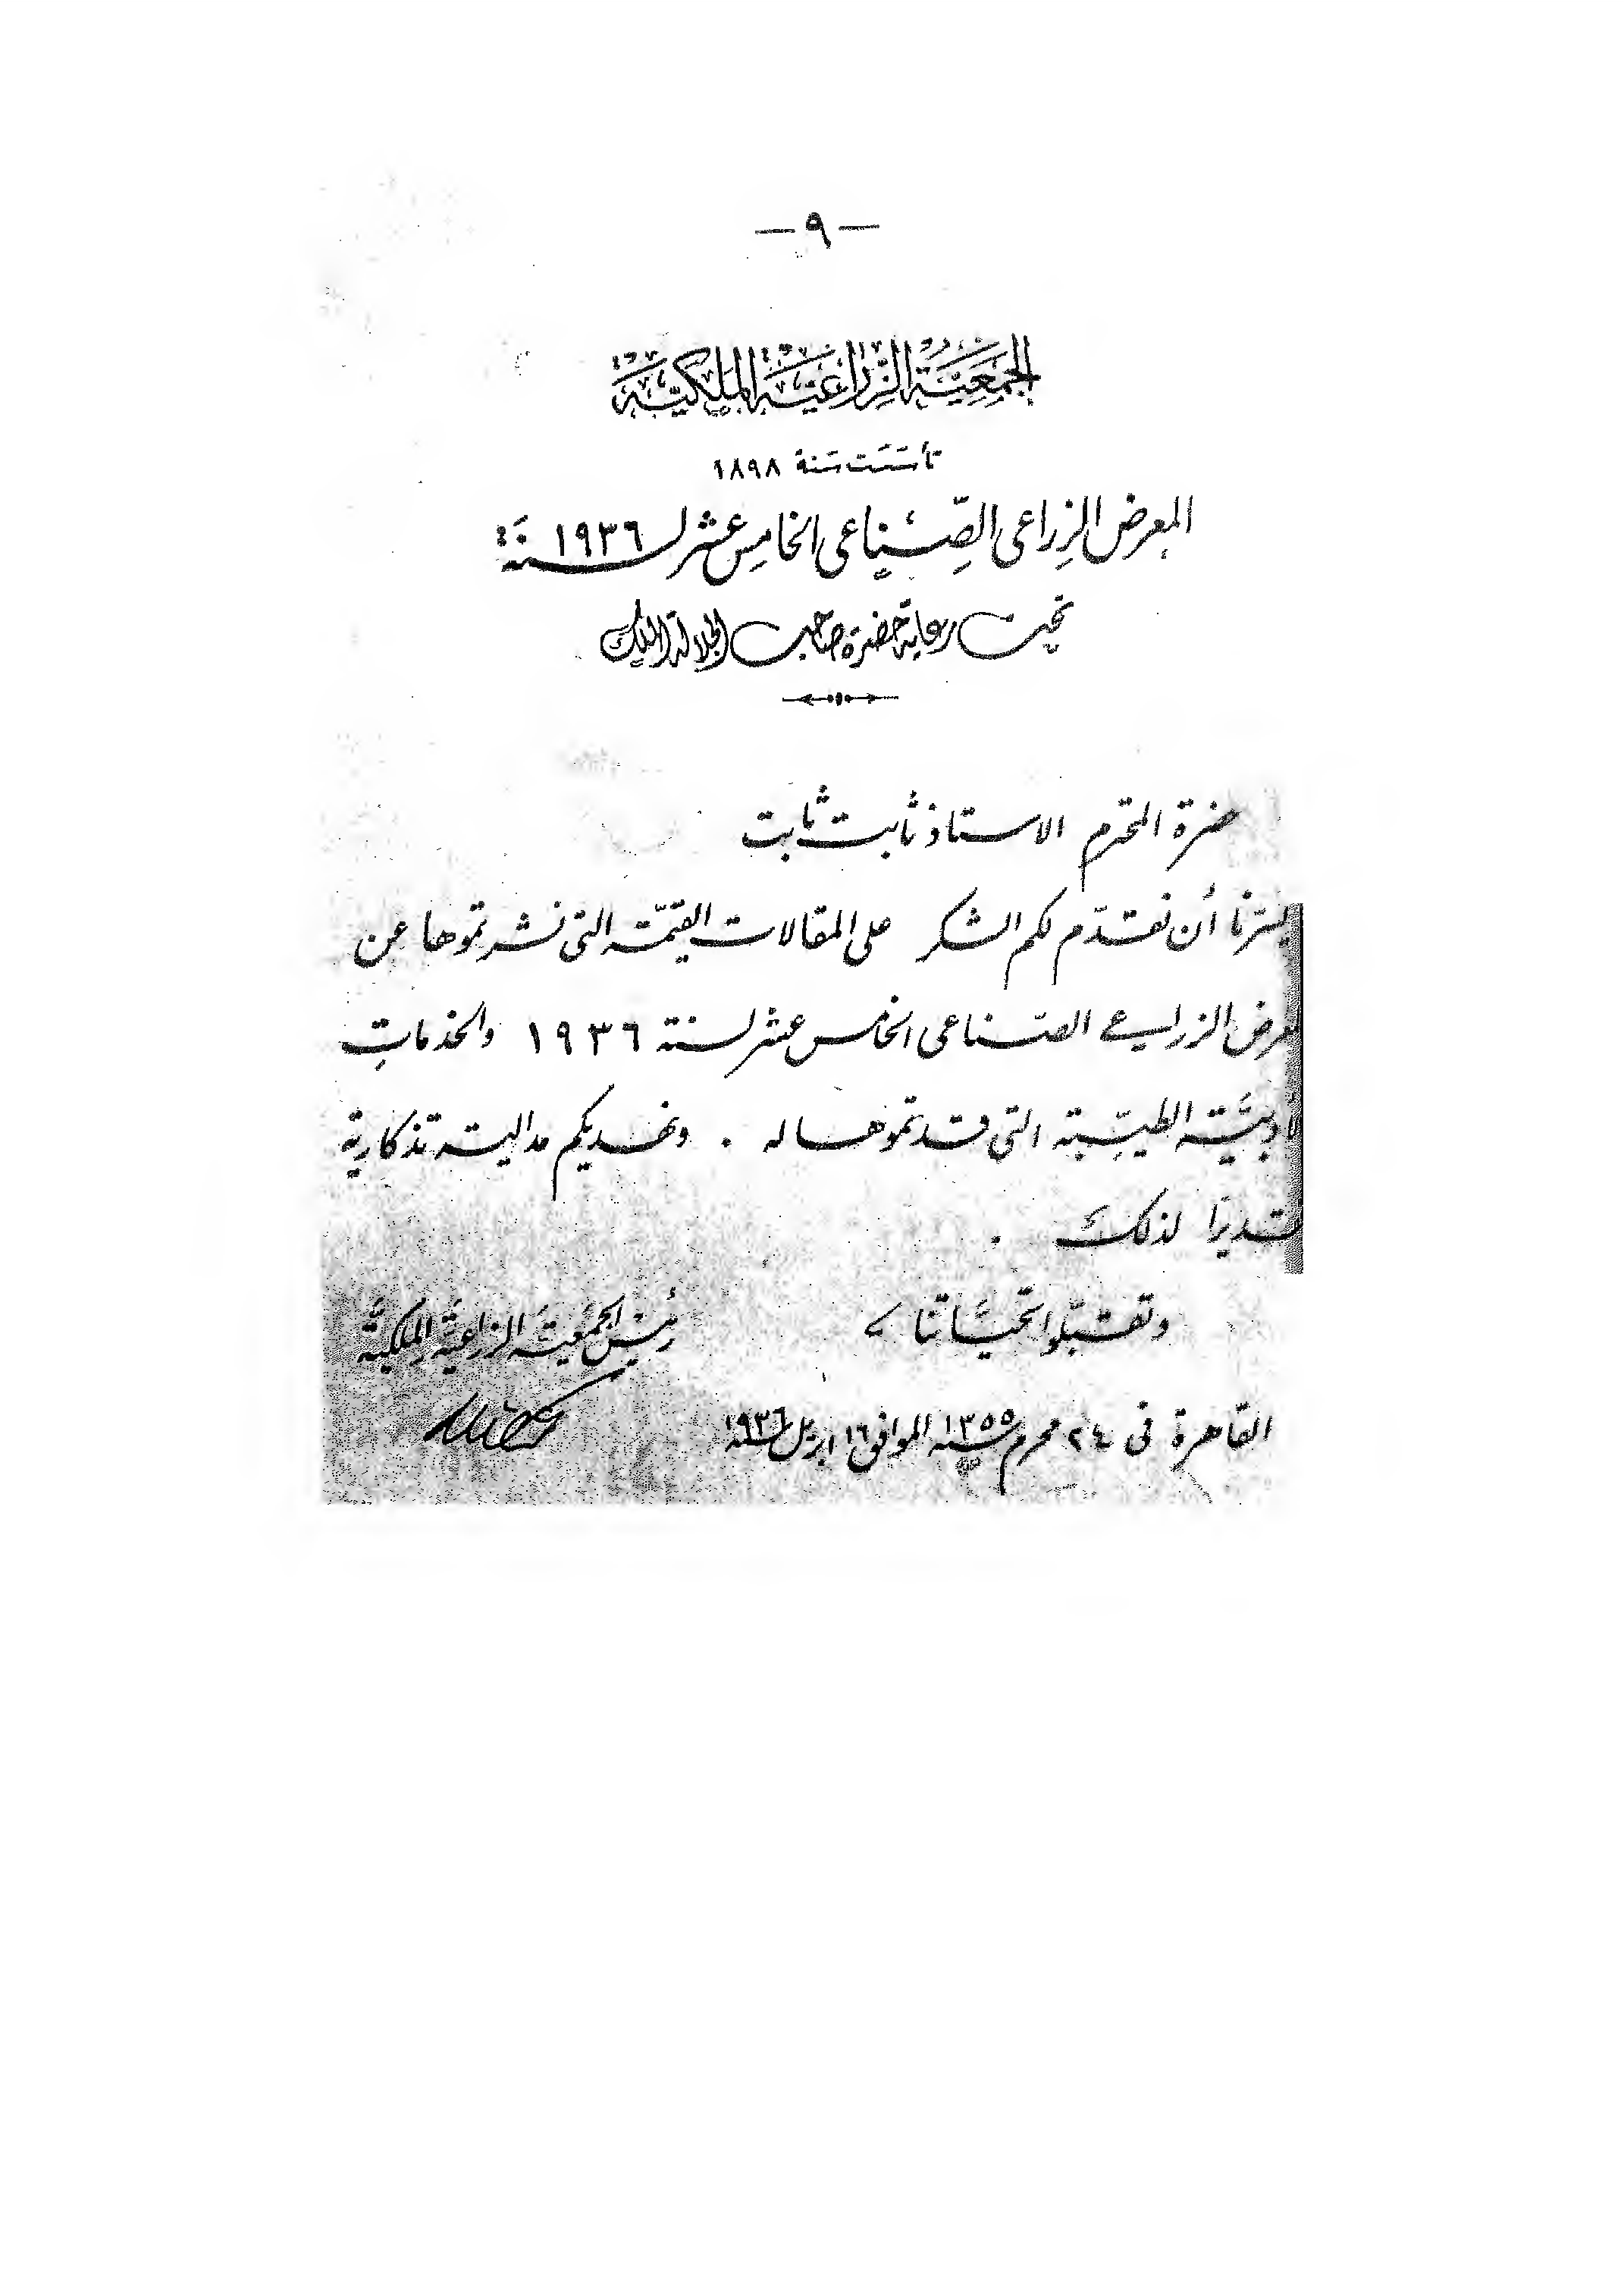 — ٩ —
الجمعية الزراعية الملكية
تأسست سنة ١٨٩٨
المعرض الزراعى الصناعى الخامس عشر لسنة ١٩٣٦
تحت رعاية حضرة صاحب الجلالة الملك
حضرة المحترم الاستاذ ثابت ثابت
يسرنا أن نقدّم لكم الشكر على المقالات القيّمة التى نشرتموها عن
المعرض الزراعى الصناعى الخامس عشر لسنة ١٩٣٦ والخدمات
الأدبيّة الطيّبة التى قدتموها له . ونهديكم مدالية تذكارية
تقديرًا لذلك .
وتقبّلوا تحيّاتنا
رئيس الجمعيّة الزراعيّة الملكيّة
القاهرة فى ٢٤ محرم سنة ١٣٥٥ الموافق ١٦ ابريل سنة ١٩٣٦